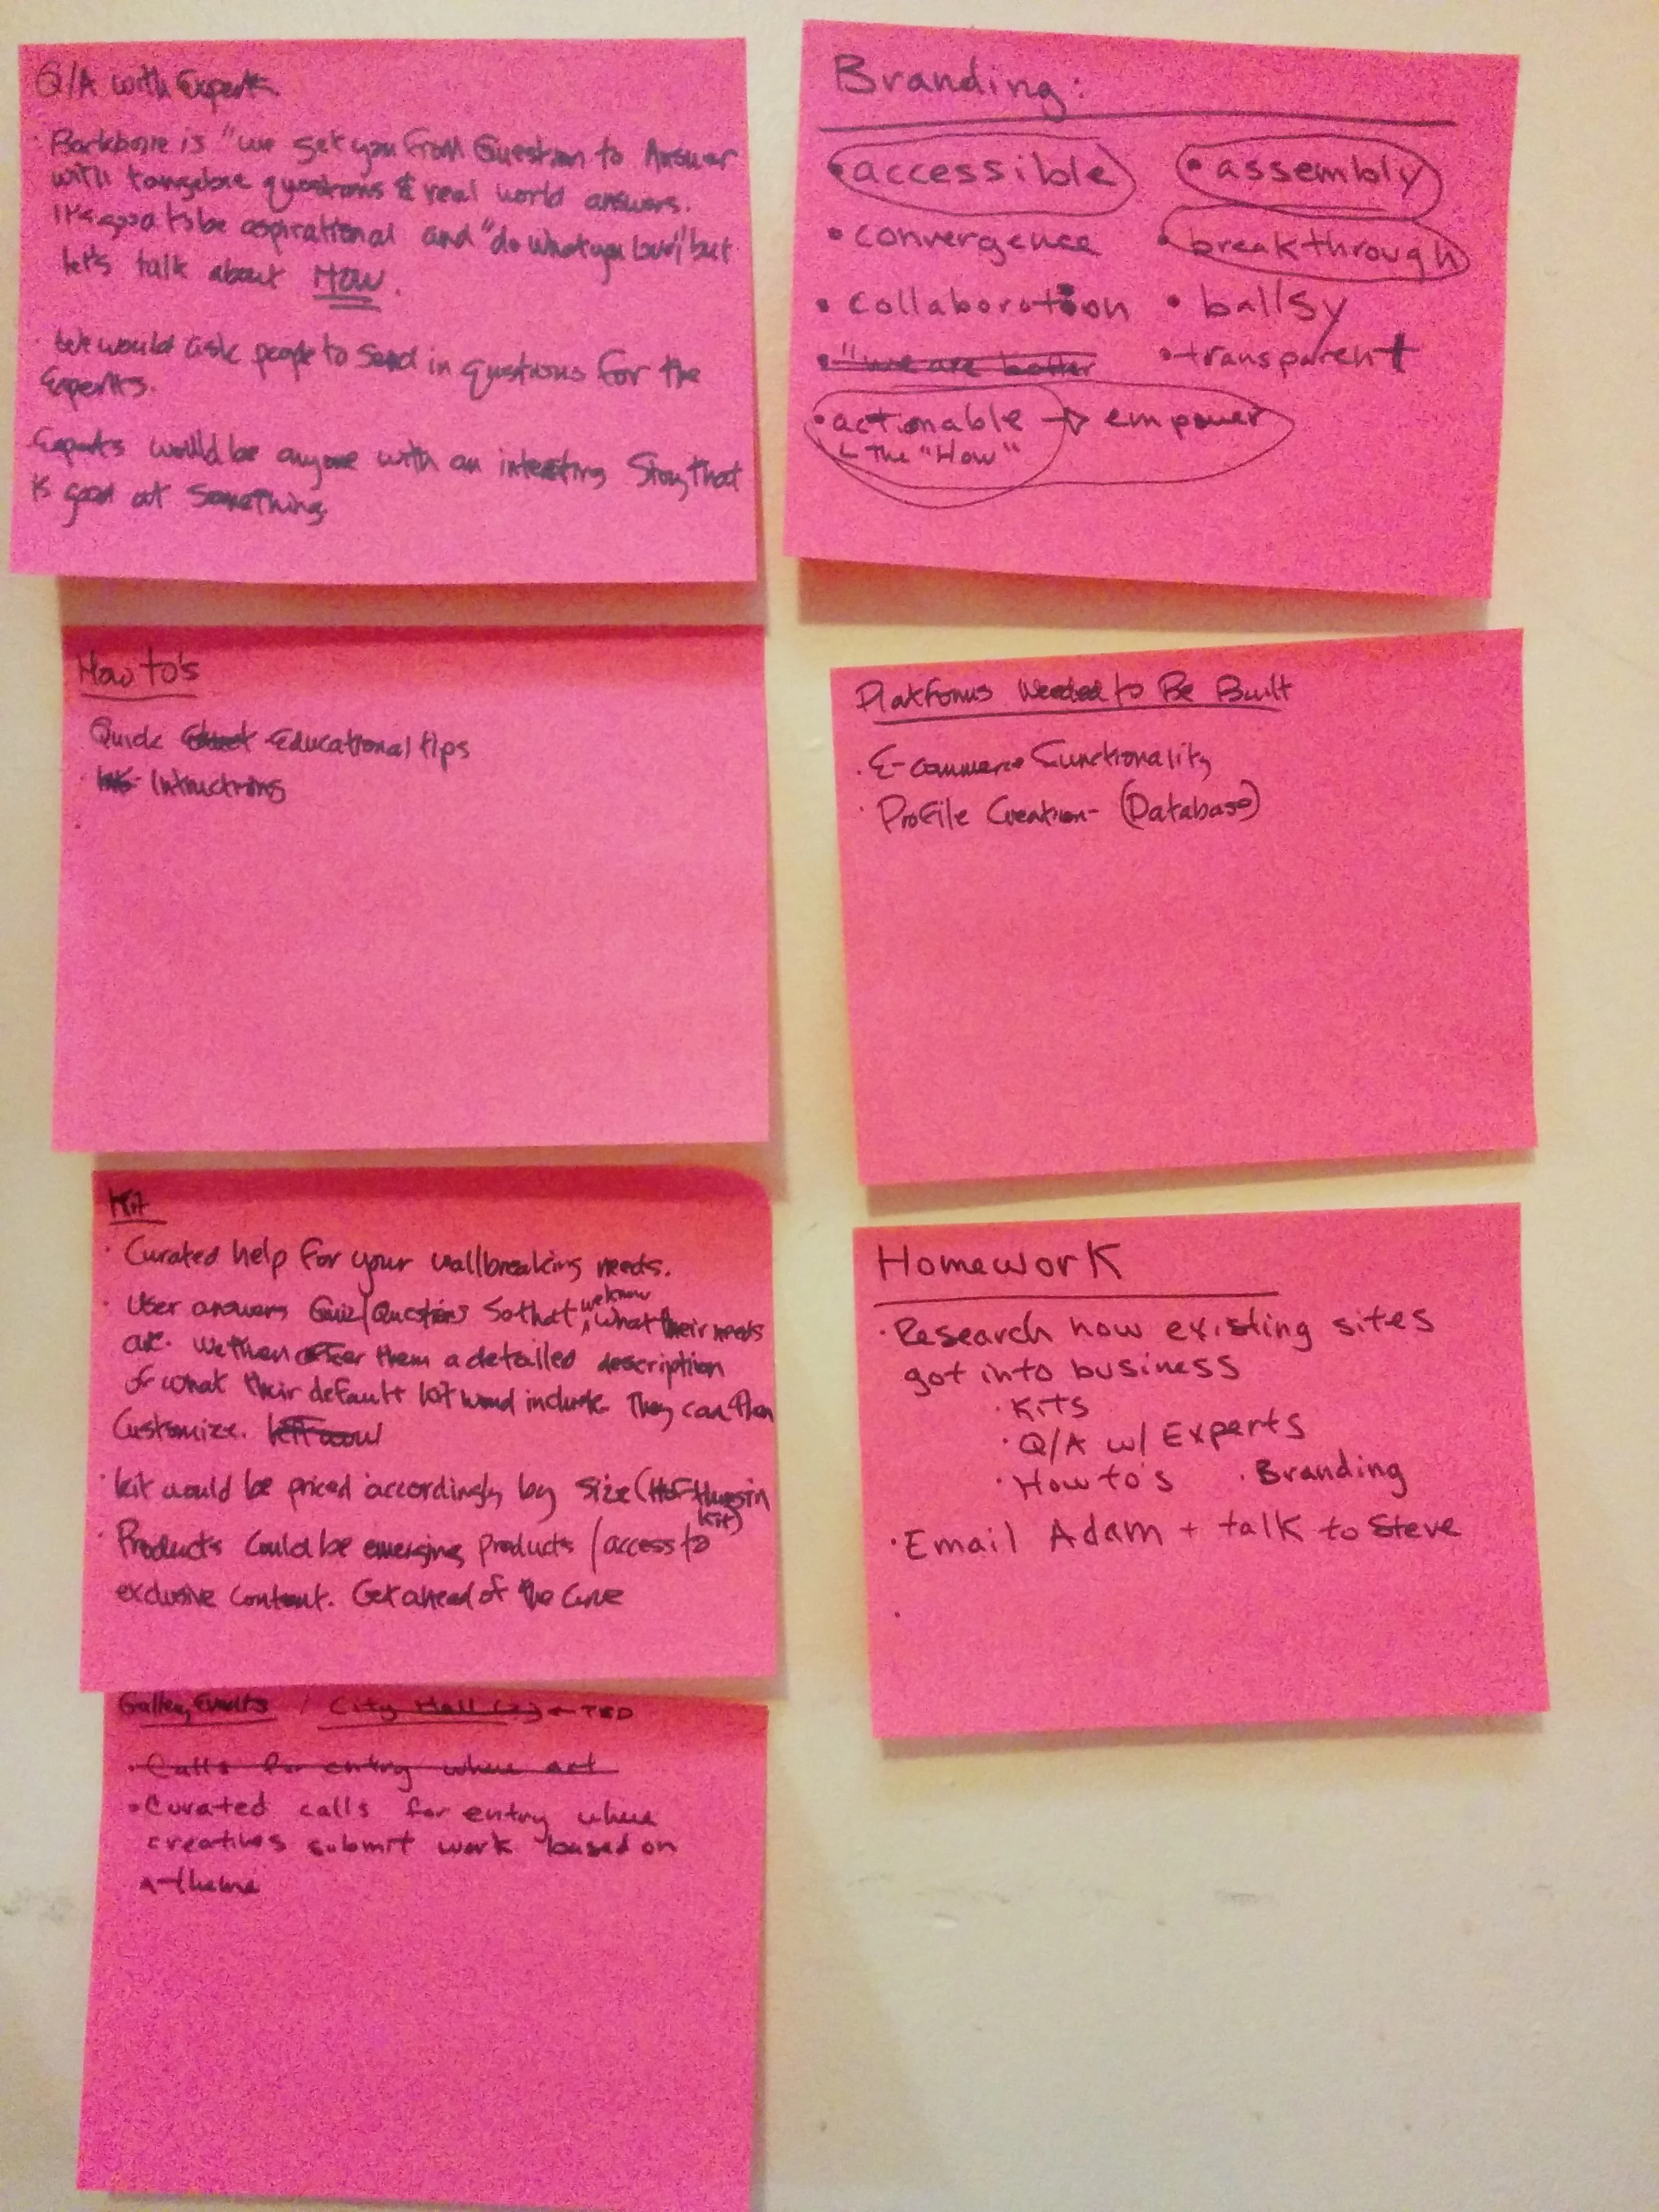 Q/A with Experts
· Backbone is "we get you from Question to Answer
with tangeble questions & real world answers.
It's good to be aspirational and "do what you love" but
let's talk about HOW.
· We would ask people to send in questions for the
Experts.
· Experts would be anyone with an intesting Story that
is good at something
Branding:
• accessible
• assembly
• convergence
• breakthrough
• collaboration
• ballsy
• "we are better
• transparent
• actionable → empower
↳ The "How"
How to's
Quick Educational tips
· Intructions
·
Platforms Needed to Be Built
· E-commerce Functionality
· Profile Creation- (Database)
Kit
· Curated help for your wallbreaking needs.
· User answers Quiz/Questions So that we know what their needs
are. We then offer them a detailed description
of what their default kit would include. They can then
Customize.
· Kit would be priced accordingly by size (# of things in
kit)
· Products could be emerging products / access to
exclusive content. Get ahead of the Curve
Homework
· Research how existing sites
got into business
· Kits
· Q/A w/ Experts
· How to's · Branding
· Email Adam + talk to Steve
·
Gallery Events / City Hall (?) ← TED
• Calls for entry where art
• Curated calls for entry where
creatives submit work based on
a theme